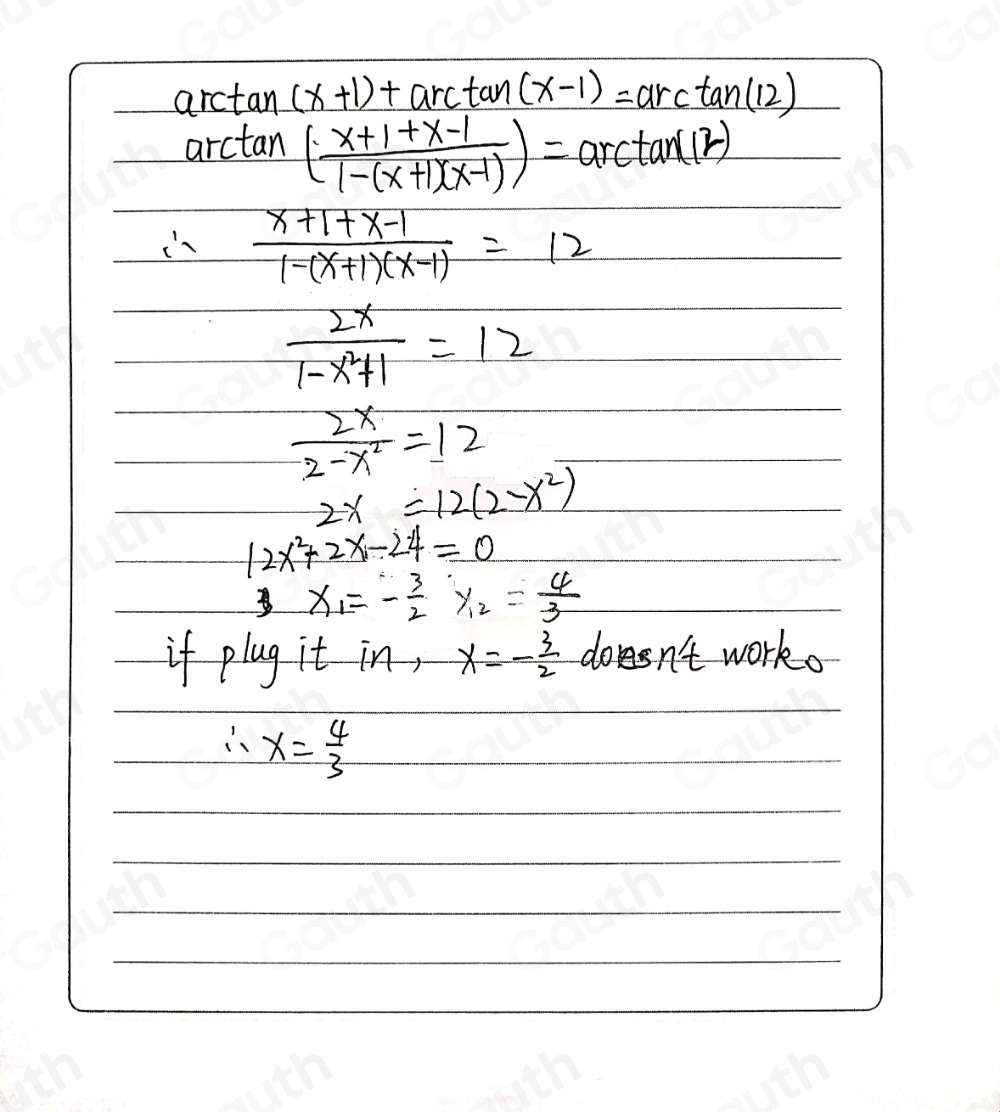 arctan (x+1) + arctan (x-1) = arctan(12)
arctan (x+1+x-1 / 1-(x+1)(x-1)) = arctan(12)
∴ x+1+x-1 / 1-(x+1)(x-1) = 12
2x / 1-x²+1 = 12
2x / 2-x² = 12
2x = 12(2-x²)
12x²+2x-24=0
x₁ = -3/2 x₂ = 4/3
if plug it in, x = -3/2 doesn't work.
∴ x = 4/3
Gauth